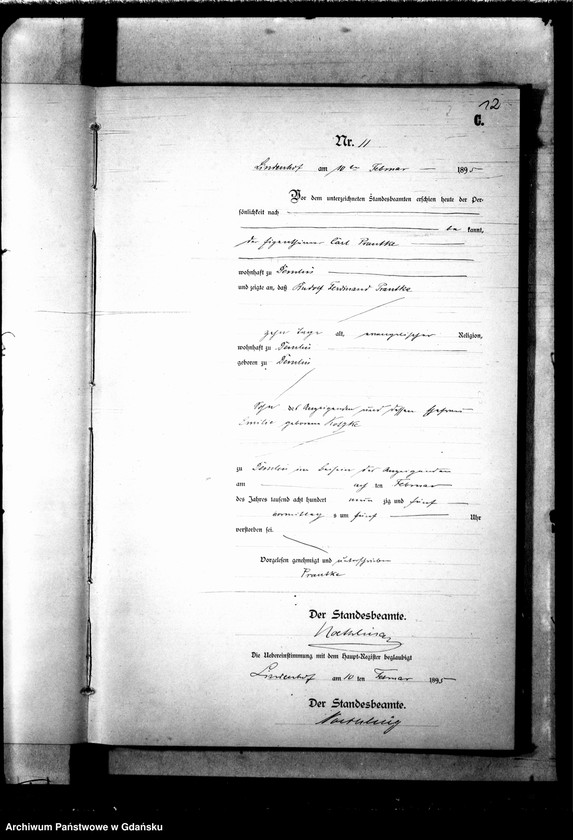 12
C.
Nr. 11
Lindenhof am 10ten Februar 1895
Vor dem unterzeichneten Standesbeamten erschien heute der Per-
sönlichkeit nach
be kannt,
der Eigenthümer Carl Prantke
wohnhaft zu
und zeigte an, daß Rudolf Ferdinand Prantke
zehn Tage alt, evangelischer Religion,
wohnhaft zu
geboren zu
Sohn des Anzeigenden und dessen Ehefrau
Emilie geborene
zu im Beisein des Anzeigenden
am ach ten Februar
des Jahres tausend acht hundert neun zig und fünf
vormittag s um fünf Uhr
verstorben sei.
Vorgelesen genehmigt und unterschrieben
Prantke
Der Standesbeamte.
Die Uebereinstimmung mit dem Haupt-Register beglaubigt
Lindenhof am 10 ten Februar 1895
Der Standesbeamte.
Archiwum Państwowe w Gdańsku